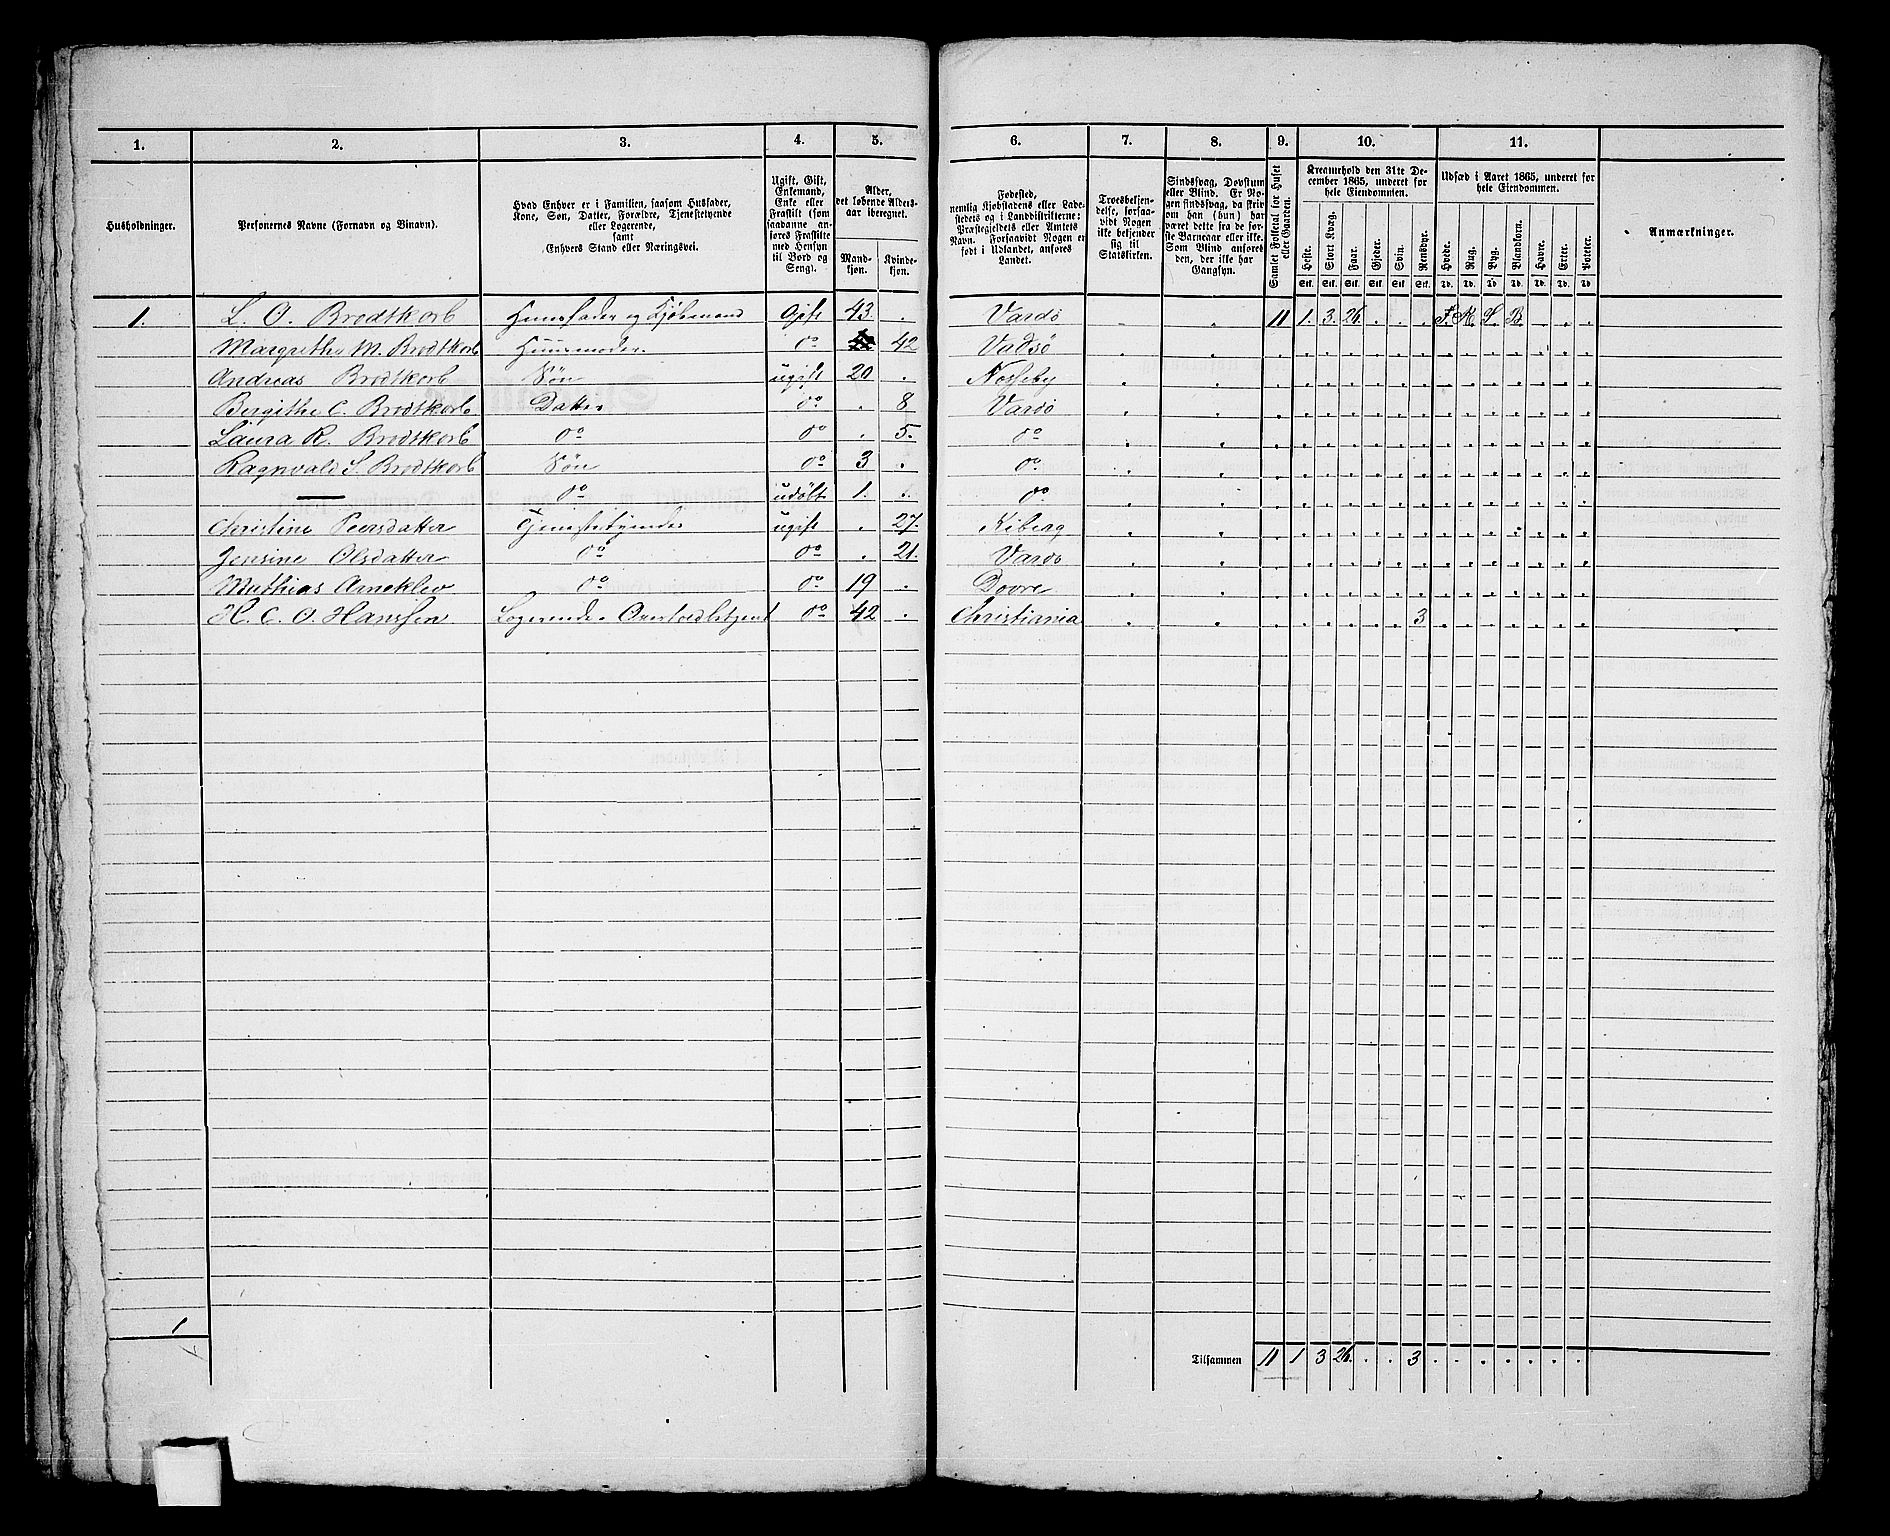 1. 2. 3. 4. 5. 6. 7. 8. 9. 10. 11.
Husholdninger.
Personernes Navne (Fornavn og Binavn).
Hvad Enhver er i Familien, saasom Husfader,
Kone, Søn, Datter, Forældre, Tjenestetyende
eller Logerende,
samt
Enhvers Stand eller Næringsvei.
Ugift, Gift,
Enkemand,
Enke eller
Fraskilt (som
saadanne an-
føres Fraskilte
med Hensyn
til Bord og
Seng).
Alder,
det løbende Alders-
aar iberegnet.
Mand-
kjøn.
Kvinde-
kjøn.
Fødested,
nemlig Kjøbstadens eller Lade-
stedets og i Landdistrikterne:
Præstegjeldets eller Amtets
Navn. Forsaavidt Nogen er
født i Udlandet, anføres
Landet.
Troesbekjen-
delse, forsaa-
vidt Nogen
ikke bekjender
sig til
Statskirken.
Sindssvag, Døvstum
eller Blind. Er No-
gen sindssvag, da skriv
om han (hun) har
været dette fra de før-
ste Barneaar eller ikke.
Som Blind anføres
den, der ikke har
Gangsyn.
Samlet Folketal for Huset
eller Gaarden.
Kreaturhold den 31te De-
cember 1865, underet for
hele Eiendommen.
Heste. Stort Kvæg. Faar. Gjeder. Svin. Rensdyr.
Stk. Stk. Stk. Stk. Stk. Stk.
Udsæd i Aaret 1865, underet for
hele Eiendommen.
Hvede. Rug. Byg. Blandkorn. Havre. Erter. Poteter.
Td. Td. Td. Td. Td. Td. Td.
Anmærkninger.
1. L. O. Brodtkorb Huusfader og Kjøbmand Gift 43. . Vardø 11 1. 3. 26. . . .
Margrethe M. Brodtkorb Huusmoder. do 42 Vadsø
Andreas Brodtkorb Søn ugift 20 . Nesseby
Bergithe C. Brodtkorb Datter do . 8 Vardø
Laura R. Brodtkorb do do . 5. do
Ragnvald S. Brodtkorb Søn do 3 . do
— do udøbt 1. . do
Christine Peersdatter Tjenestetyende ugift . 27. Kiberg
Jensine Olsdatter do do . 21. Vardø
Mathias Arneklev do do 19 . Dovre
H. C. O. Hanssen Logerende do 42 . Christiania 3
1
Tilsammen 11 1 3 26. . . 3 . . . . . . .